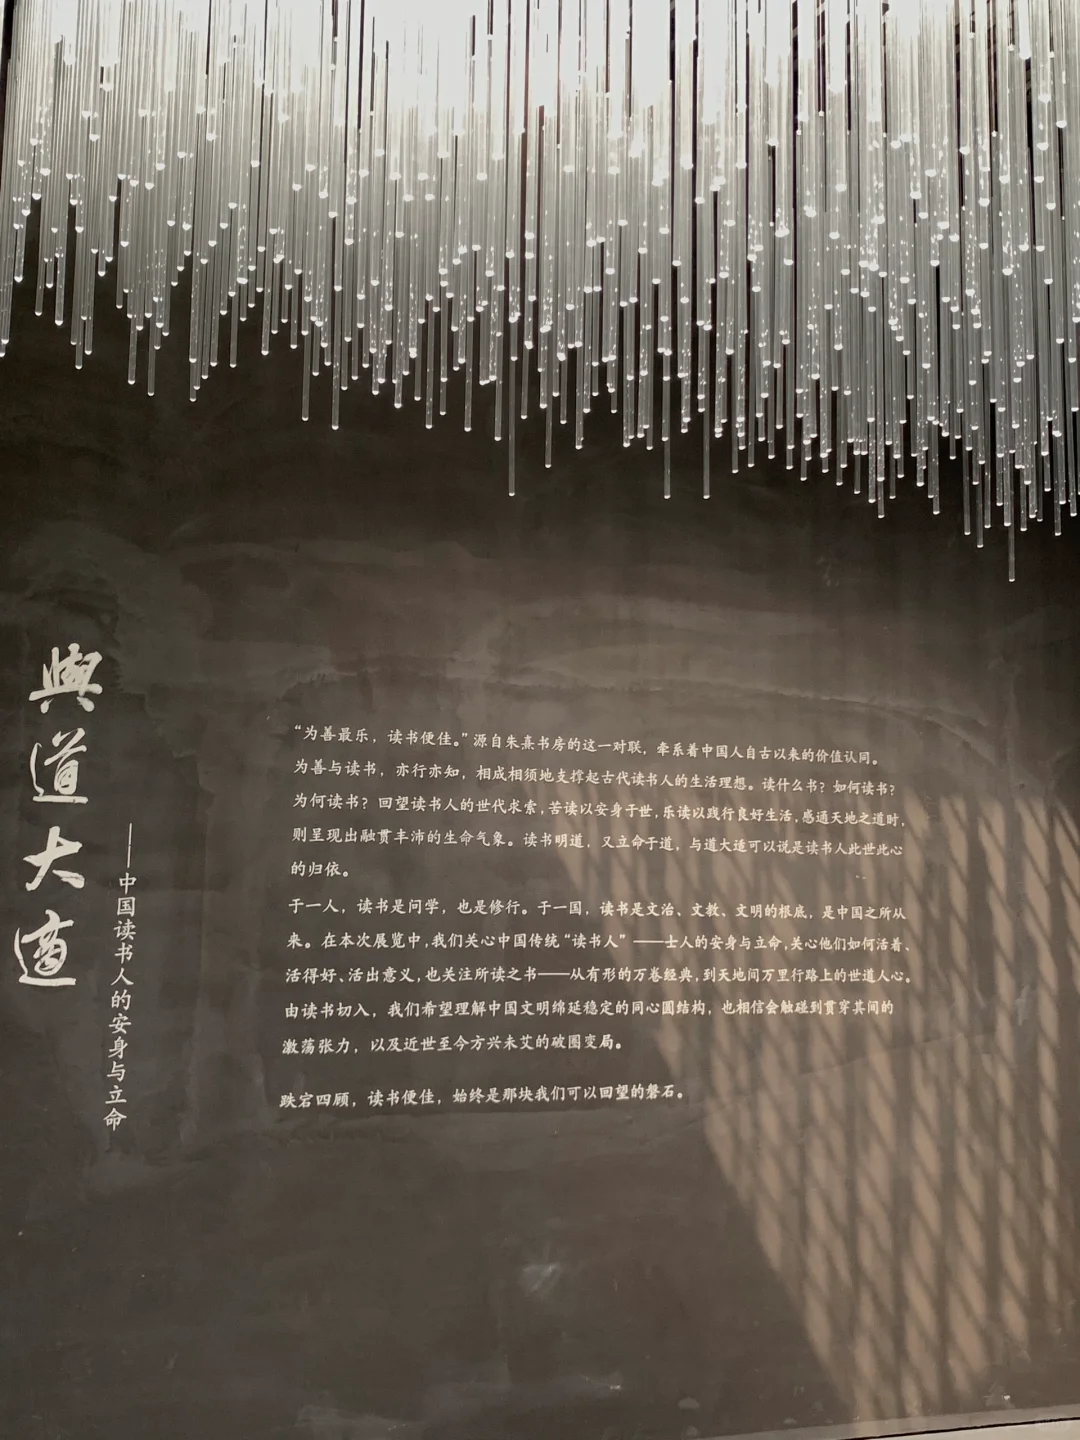 與道大適
——中国读书人的安身与立命
“为善最乐，读书便佳。”源自朱熹书房的这一对联，牵系着中国人自古以来的价值认同。
为善与读书，亦行亦知，相成相须地支撑起古代读书人的生活理想。读什么书？如何读书？
为何读书？回望读书人的世代求索，苦读以安身于世，乐读以践行良好生活，感通天地之道时，
则呈现出融贯丰沛的生命气象。读书明道，又立命于道，与道大适可以说是读书人此世此心
的归依。
于一人，读书是问学，也是修行。于一国，读书是文治、文教、文明的根底，是中国之所从
来。在本次展览中，我们关心中国传统“读书人”——士人的安身与立命，关心他们如何活着、
活得好、活出意义，也关注所读之书——从有形的万卷经典，到天地间万里行路上的世道人心。
由读书切入，我们希望理解中国文明绵延稳定的同心圆结构，也相信会触碰到贯穿其间的
激荡张力，以及近世至今方兴未艾的破圈变局。
跌宕四顾，读书便佳，始终是那块我们可以回望的磐石。